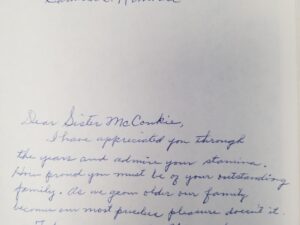 Dear Sister McConkie,
I have appreciated you through
the years and admire your stamina.
How proud you must be of your outstanding
family. As we grow older our family
become our most precious pleasure doesn't it.